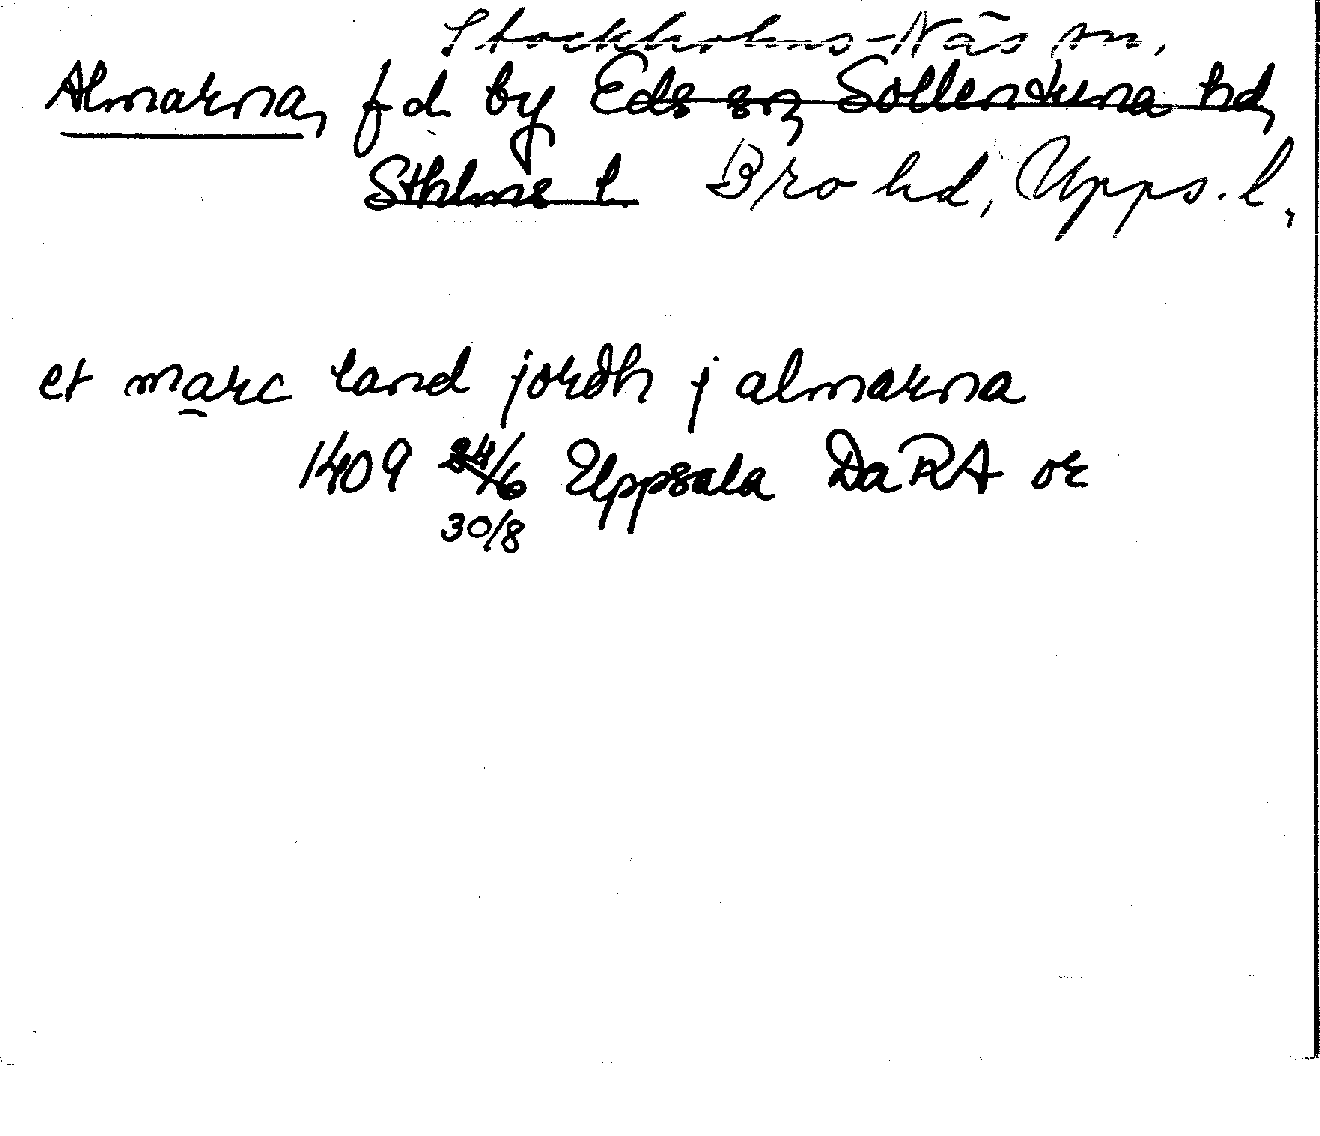 Stockholms-Näs sn,
Almarna, f d. by Eds sn, Sollentuna hd,
Sthlms l. Bro hd, Upps. l.,
et marc land jordh j almarna
1409 24/6 Uppsala DaRA or
30/8